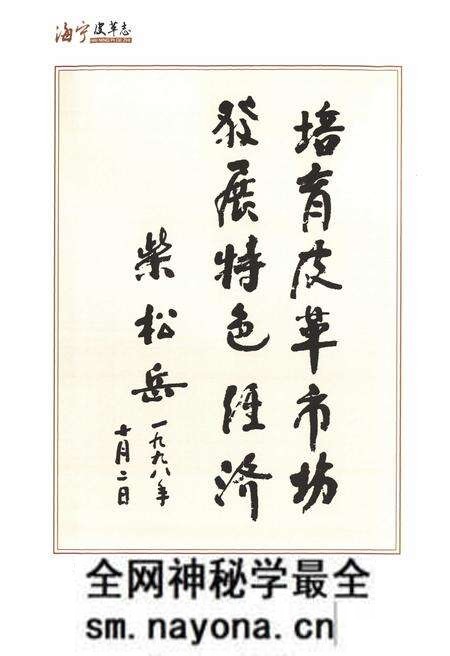 海宁皮革志
HAI NING PI GE ZHI
培育皮革市场
發展特色經济
柴松岳
一九九八年
十月二日
全网神秘学最全
sm.nayona.cn